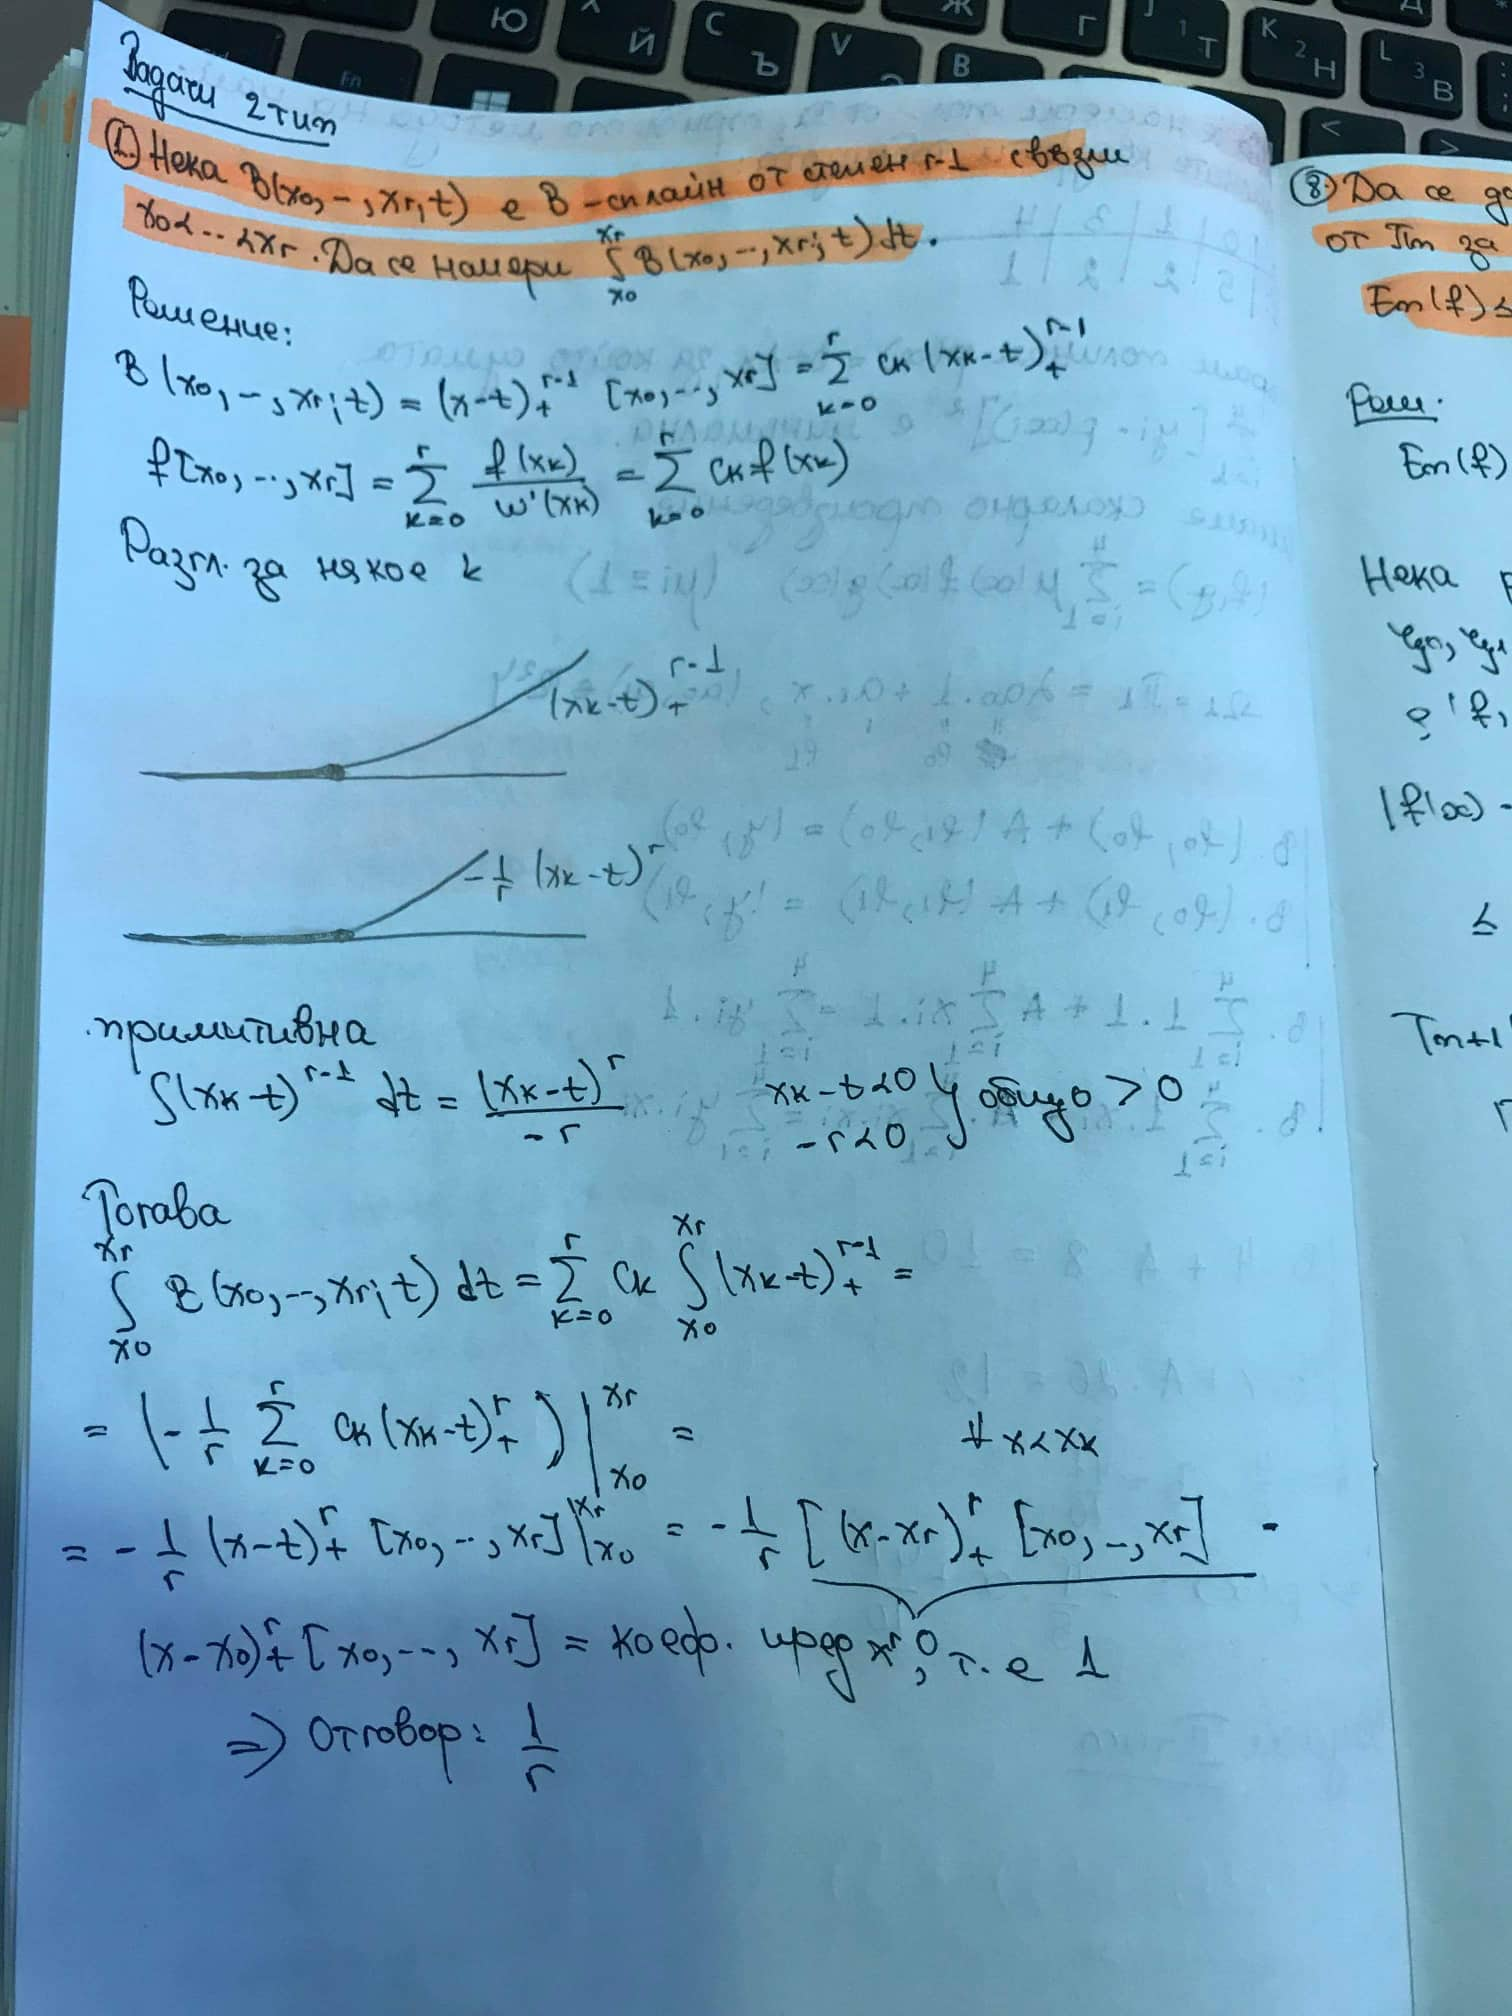 Задачи 2 тип
① Нека B(x0,-,xr,t) е B-сплайн от степен r-1 с възли
x0<...<xr. Да се намери ∫_{x0}^{xr} B(x0,--,xr;t)dt.
Решение:
B(x0,-,xr;t) = (x-t)_+^{r-1} [x0,--,xr] = Σ_{k=0}^{r} ck (xk-t)_+^{r-1}
f[x0,--,xr] = Σ_{k=0}^{r} f(xk)/w'(xk) = Σ_{k=0}^{r} ck f(xk)
Разгл. за някое k
(xk-t)_+^{r-1}
-1/r (xk-t)^r
примитивна
∫(xk-t)^{r-1} dt = (xk-t)^r/-r xk-t<0 } общо > 0
-r<0
Тогава
∫_{x0}^{xr} B(x0,--,xr;t) dt = Σ_{k=0}^{r} ck ∫_{x0}^{xr} (xk-t)_+^{r-1} =
= (-1/r Σ_{k=0}^{r} ck (xk-t)_+^r)|_{x0}^{xr} = ∀ x<xk
= -1/r (x-t)_+^r [x0,--,xr]|_{x0}^{xr} = -1/r [(x-xr)_+^r [x0,-,xr] -
0
(x-x0)_+^r [x0,--,xr] = коеф. пред x^r, т.е 1
=> Отговор: 1/r
⑧ Да се
от πm за
Em(f) ≤
Реш.
Em(f)
Нека
|f(x) -
≤
Tm+1